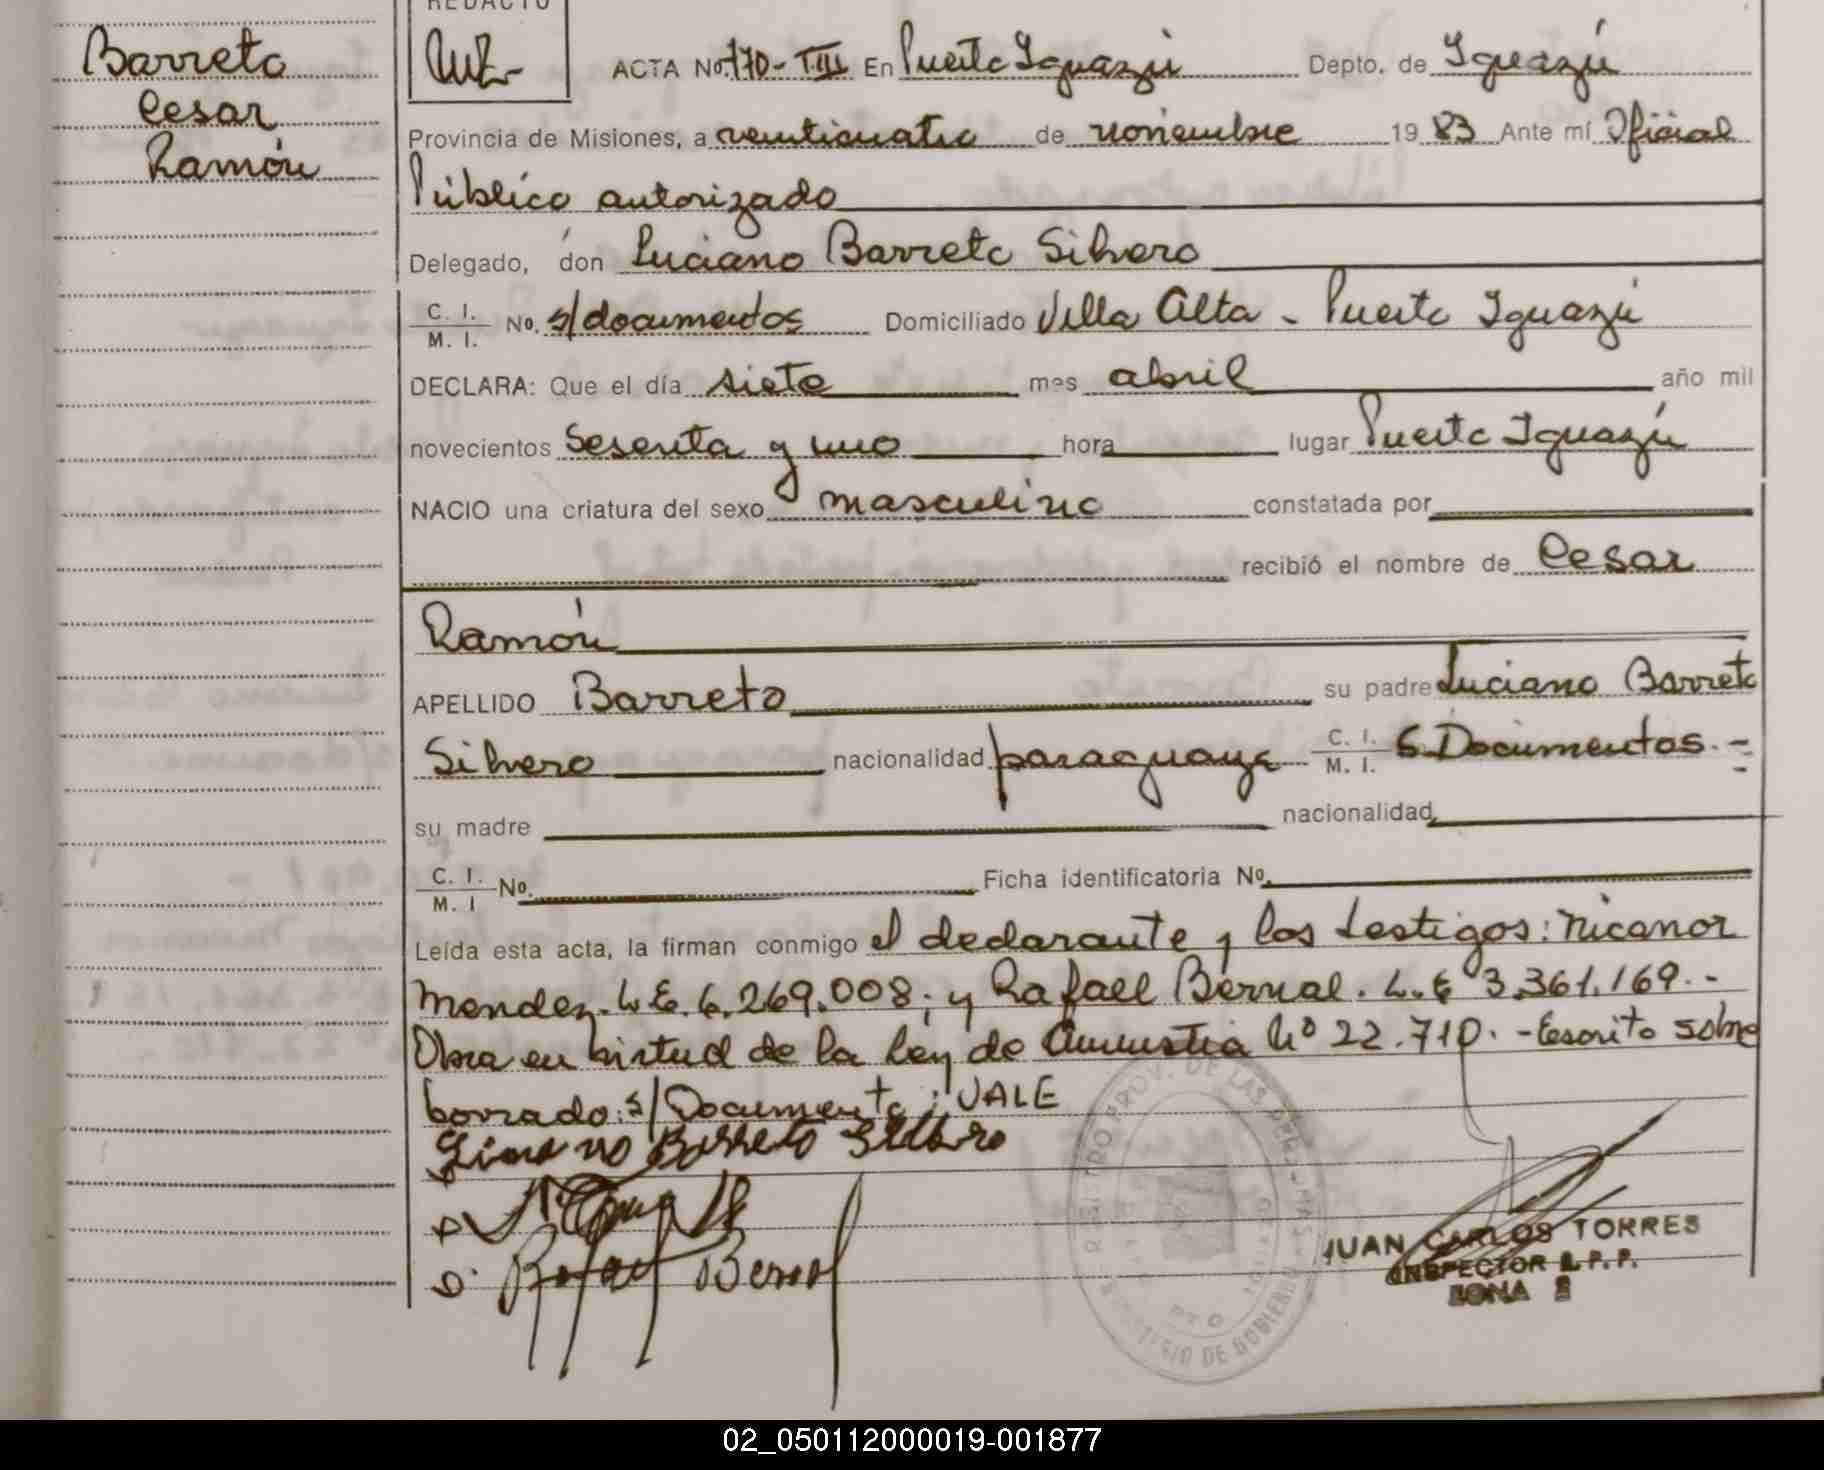 Barreto
Cesar
Ramón
REDACTO
ACTA No. 170-TIII En Puerto Iguazú Depto. de Iguazú
Provincia de Misiones, a veinticuatro de noviembre 1983 Ante mí Oficial
Público autorizado
Delegado, don Luciano Barreto Silvero
C. I. M. I. No. s/documentos Domiciliado Villa Alta - Puerto Iguazú
DECLARA: Que el día siete mes abril año mil
novecientos sesenta y uno hora lugar Puerto Iguazú
NACIO una criatura del sexo masculino constatada por
recibió el nombre de Cesar
Ramón
APELLIDO Barreto su padre Luciano Barreto
Silvero nacionalidad paraguaya C. I. M. I. S. Documentos.-
su madre nacionalidad
C. I. M. I No. Ficha identificatoria No.
Leída esta acta, la firman conmigo el declarante y los testigos: Nicanor
Mendez. L.E. 6.269.008; y Rafael Bernal. L.E 3.361.169.-
Obra en virtud de la Ley de Amnistia No 22.710.- Escrito sobre
borrado: s/Documento: VALE
Barreto Silvero
Rafael Bernal
JUAN CARLOS TORRES
INSPECTOR R. P. P.
ZONA 2
REGISTRO PROV. DE LAS PERSONAS
MINISTERIO DE GOBIERNO
02_050112000019-001877